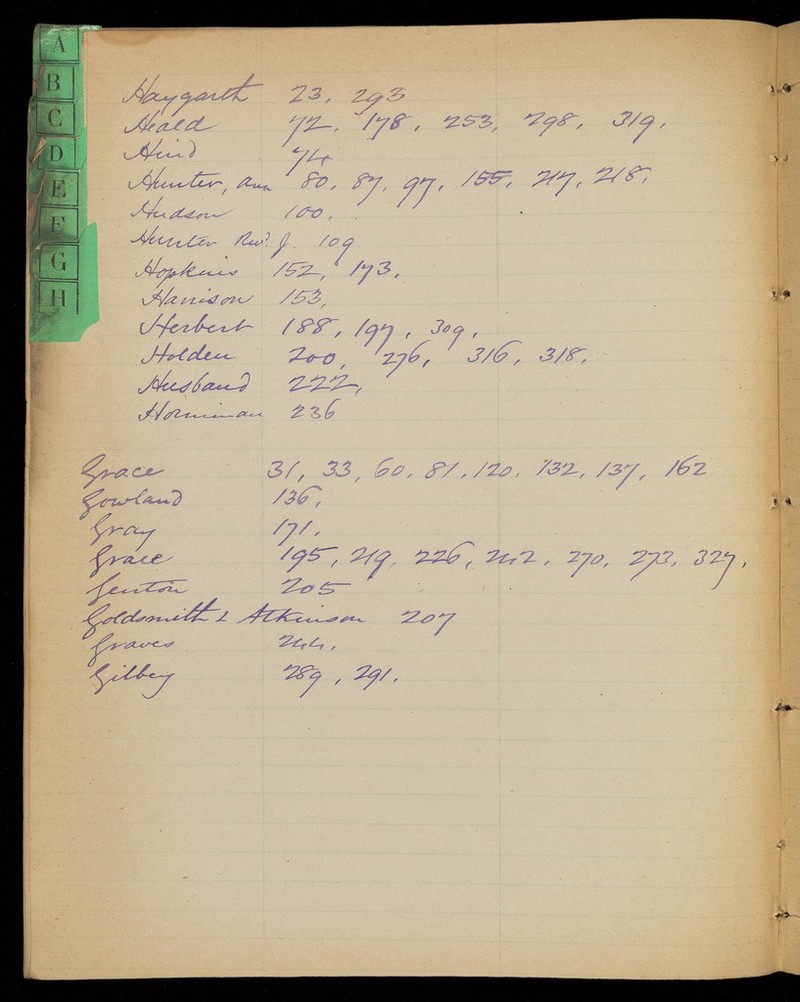 A
B
C
D
E
F
G
H
Haygarth 23, 293
Heald 72, 178, 253, 298, 319,
Hind 74
Hunter, Ann 80, 87, 97, 155, 217, 218,
Hudson 100,
Hunter Revd. J. 109
Hopkins 152, 173,
Harrison 153,
Herbert 188, 197, 309,
Holden 200, 276, 316, 318,
Husband 222,
Horniman 236
Grace 31, 33, 60, 81, 120, 132, 137, 162
Gowland 136,
Gray 171,
Grace 195, 219, 226, 242, 270, 273, 327,
Genton 205
Goldsmith & Atkinson 207
Graves 244,
Gilbey 289, 291,